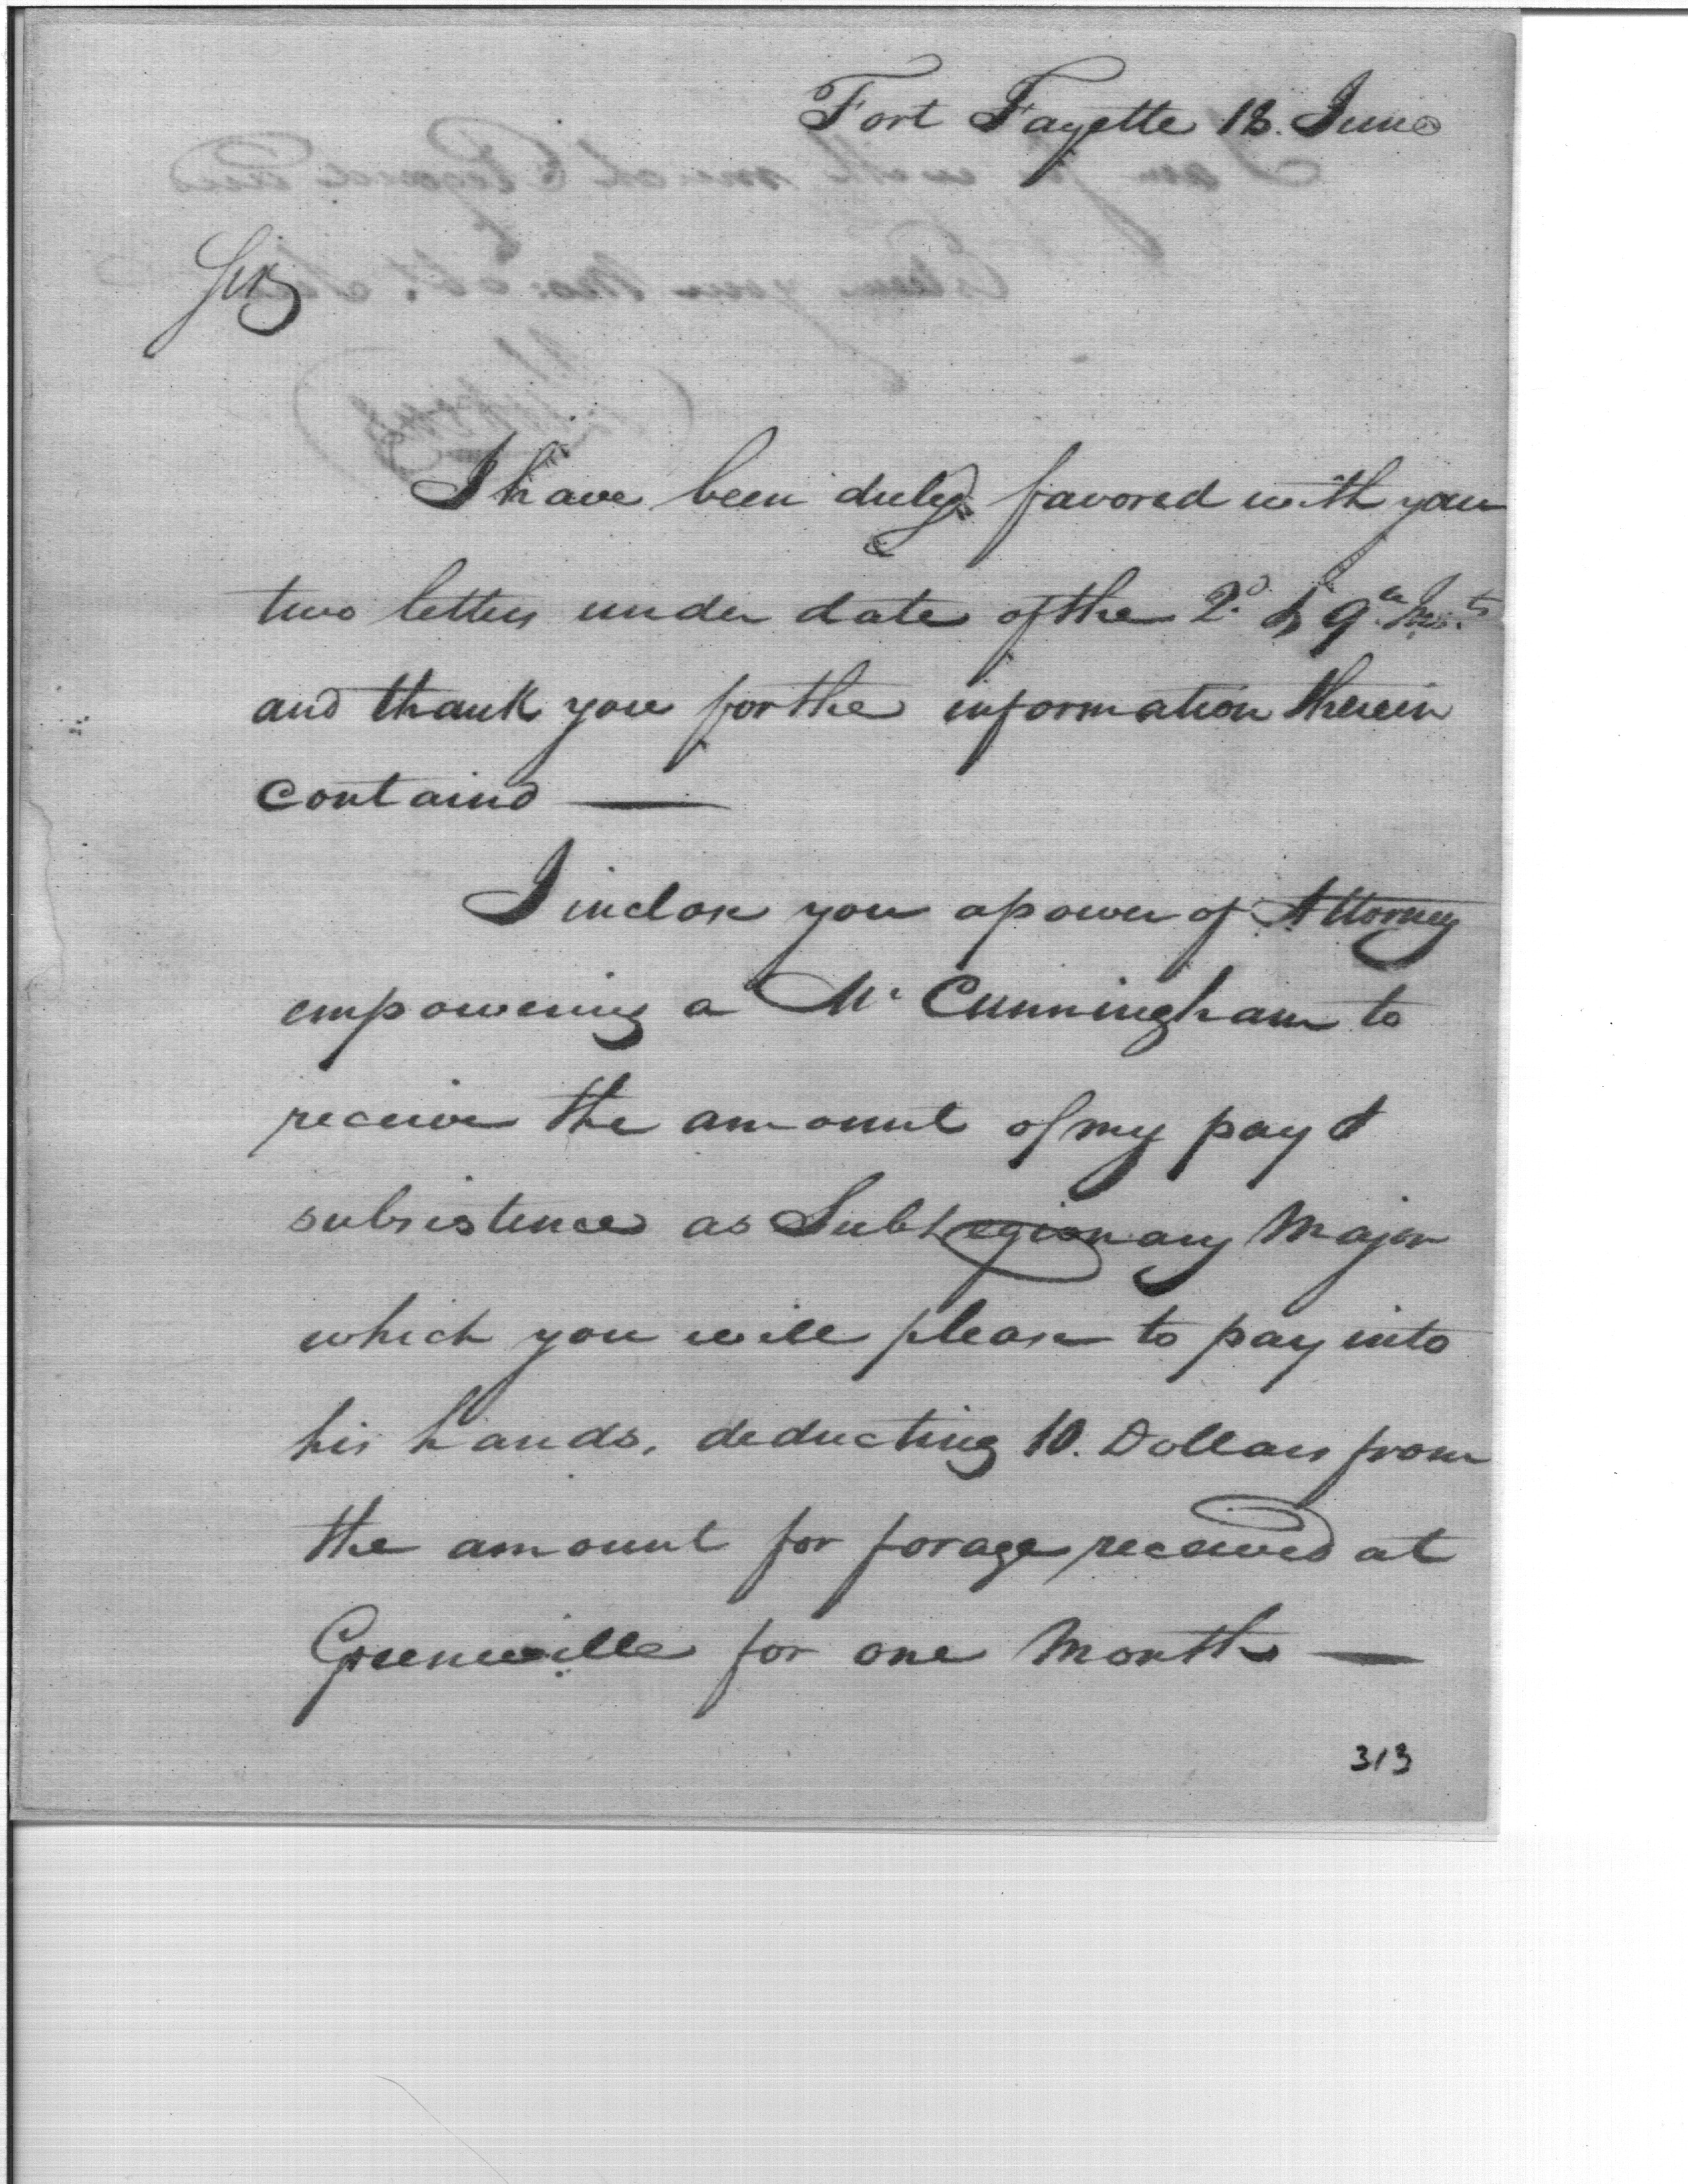 Fort Fayette 18. June
Sir
I have been duly favored with your
two letters under date of the 2.d & 9.th Ins.t
and thank you for the information therein
containd —
I inclose you a power of Attorney
empowering a Mr. Cunningham to
receive the amount of my pay &
subsistence as SubLegionary Major
which you will please to pay into
his hands, deducting 10. Dollars from
the amount for forage received at
Greenville for one Month —
313